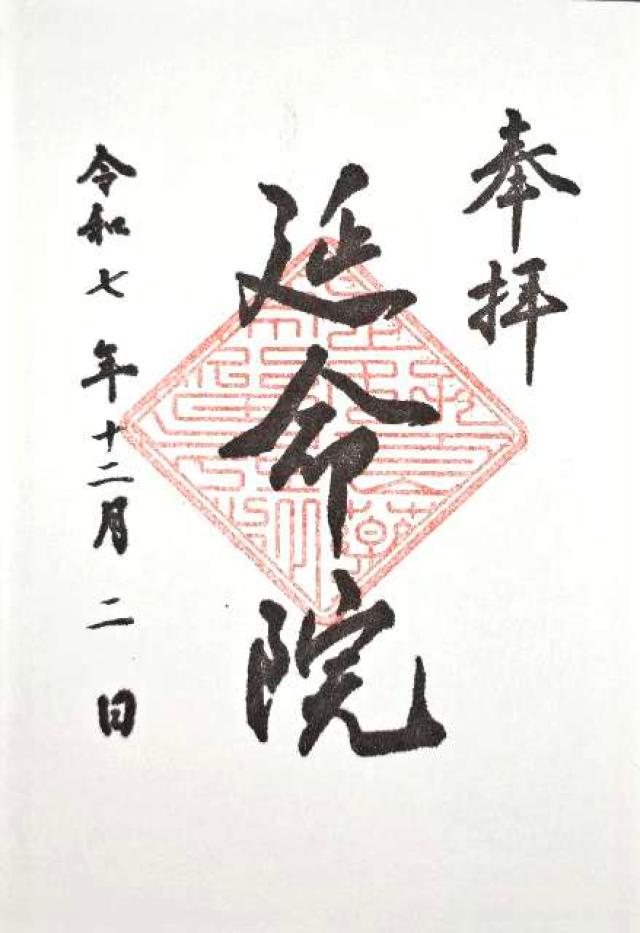 奉拝
延命院
令和七年十二月二日